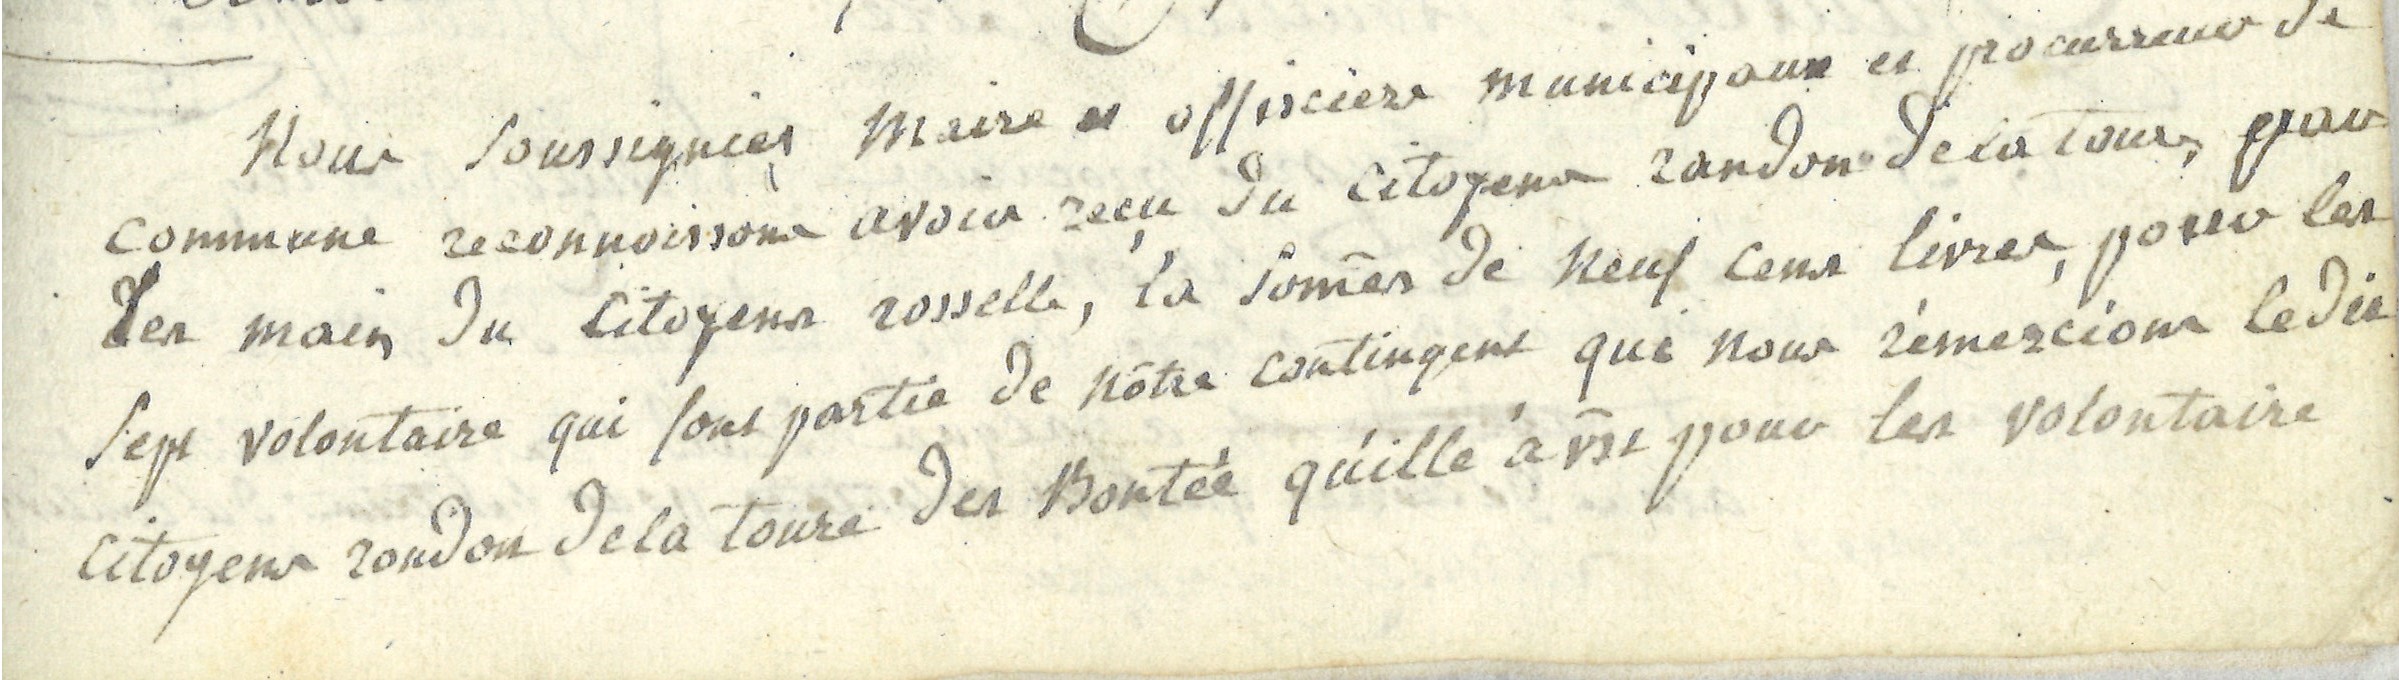 Nous soussigniés Maire et offisciers municipaux et procurreur de
commune reconnoissons avoir reçu du citoyens randon de la tour, par
les main du citoyens rosselle, la somes de neuf cens livres, pour les
sept volontaire qui font partie de nôtre contingent qui nous rémercions ledit
citoyens randon de la toure des Bontée qu'ille a pour les volontaire